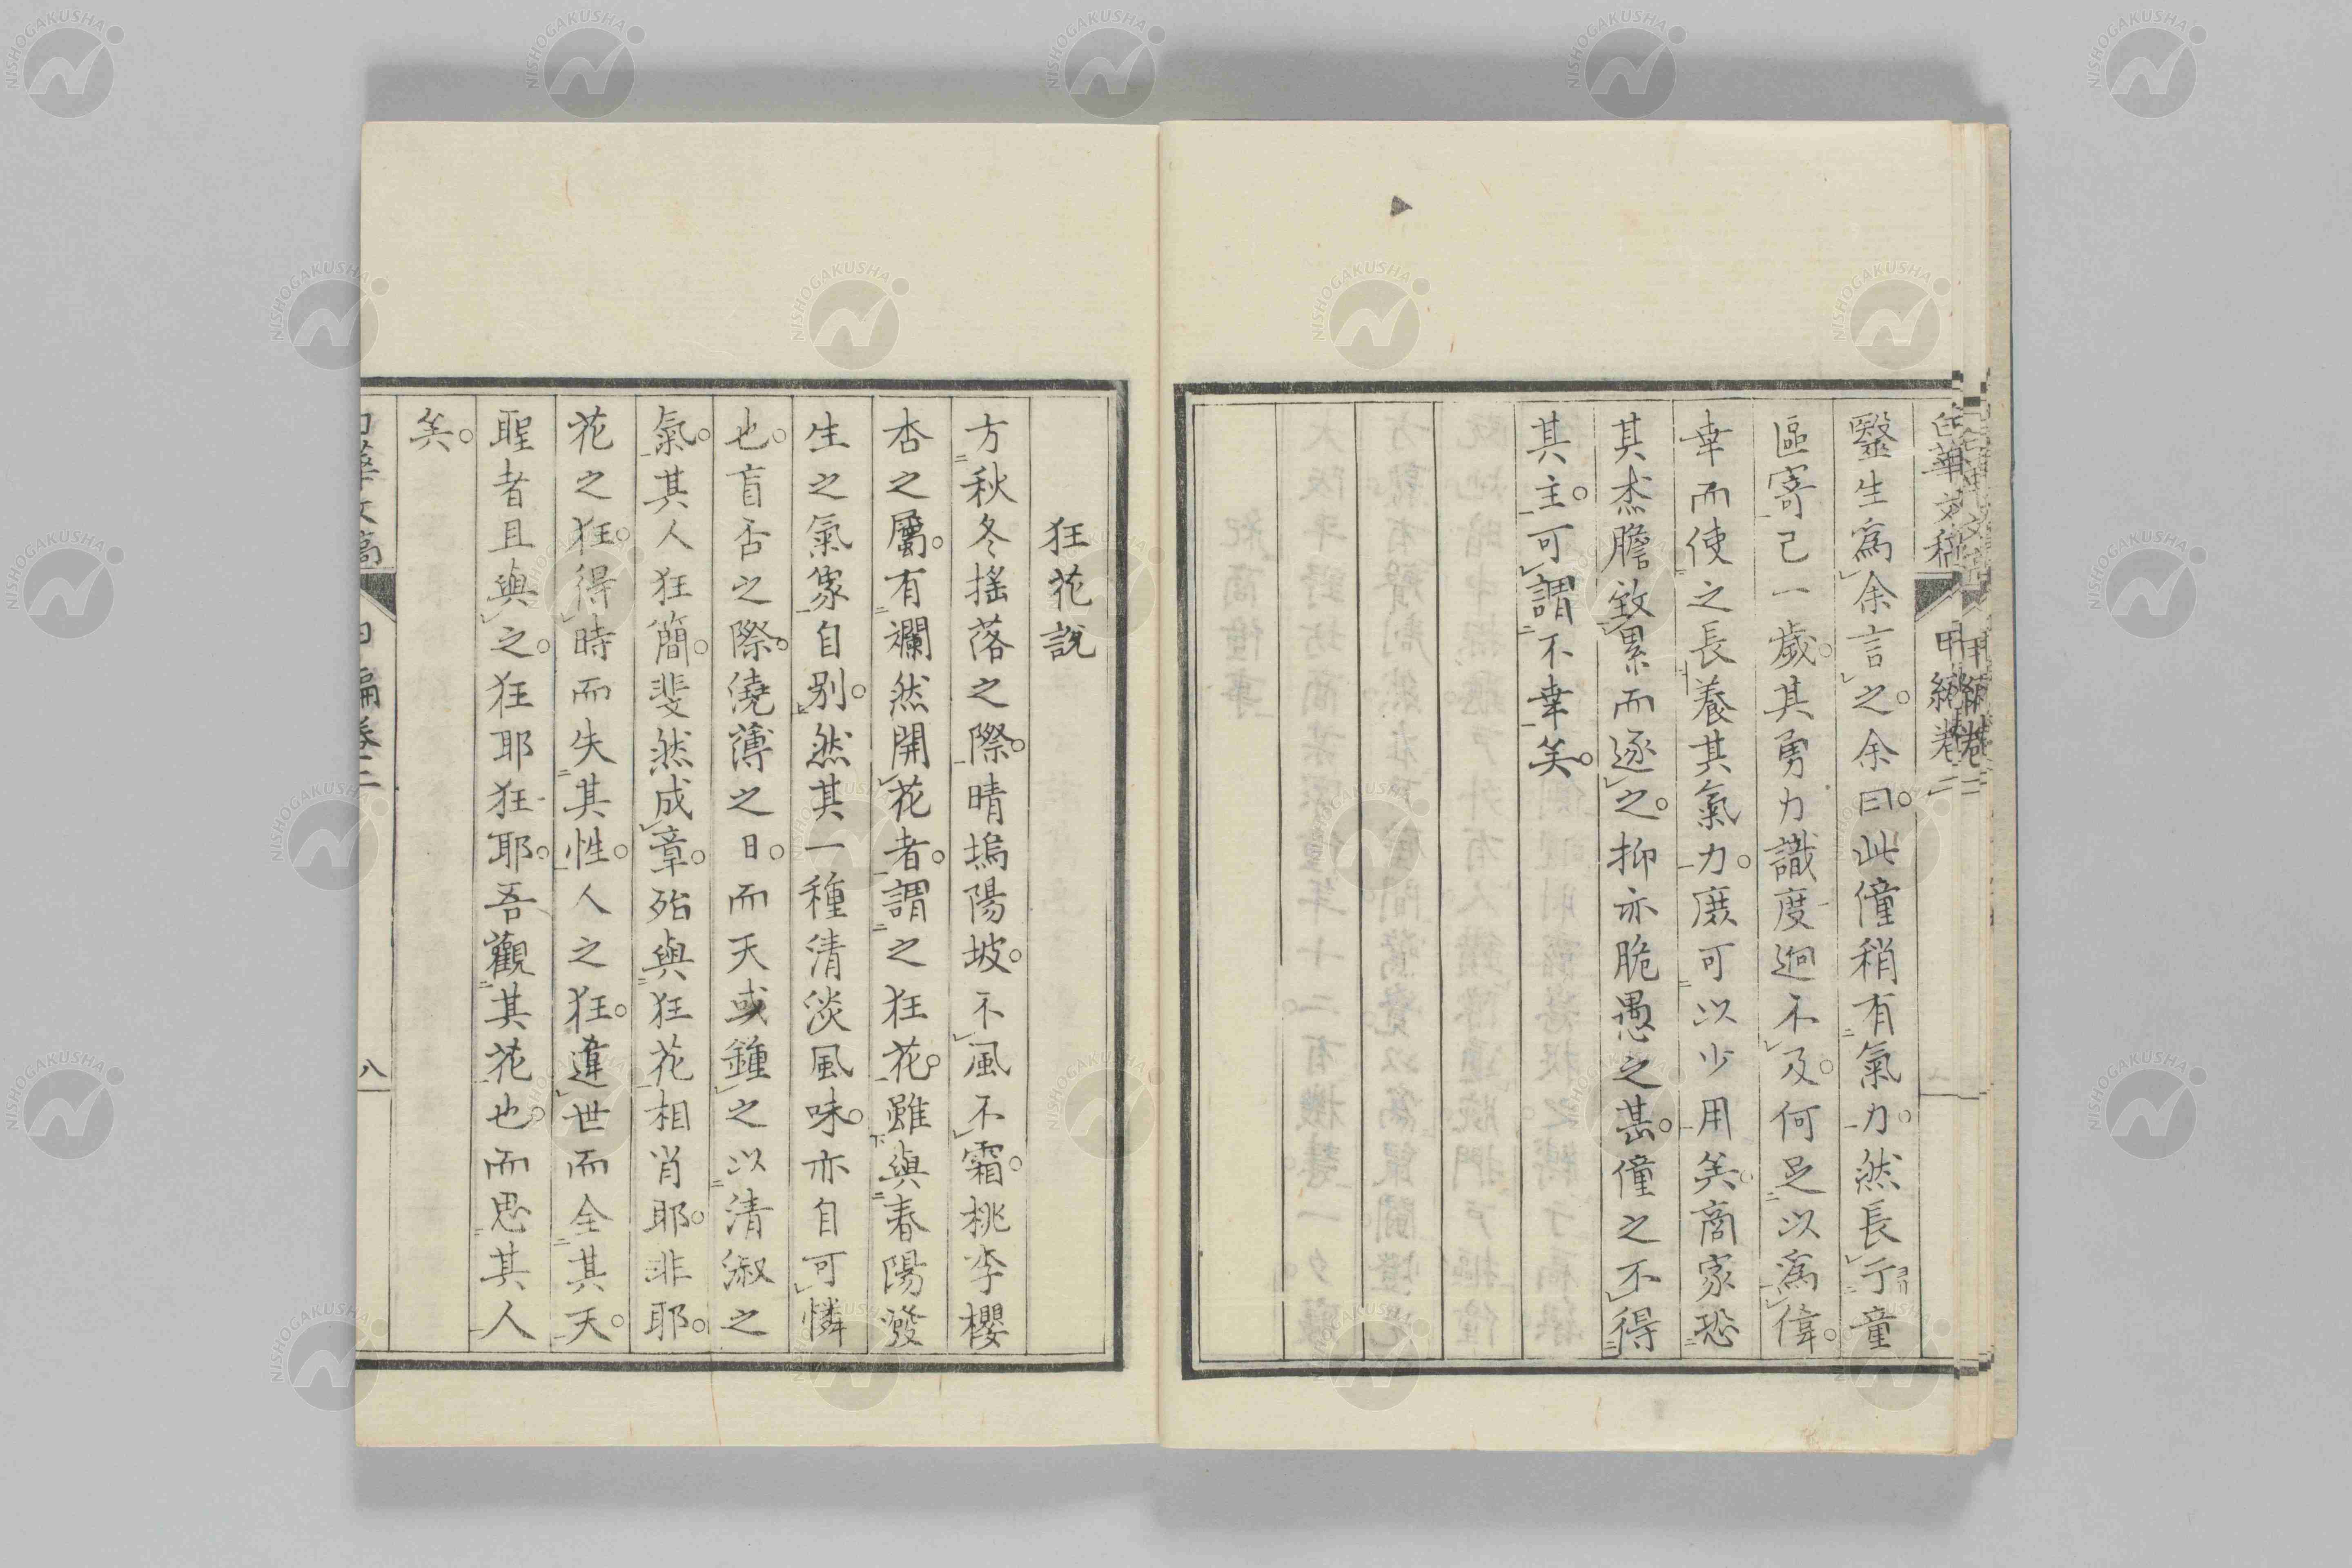 醫生爲余言之。余曰。此僮稍有氣力。然長于童
區寄已一歲。其勇力識度迥不及。何足以爲偉。
幸而使之長養其氣力。庶可以少用矣。商家恐
其杰膽致累而逐之。抑亦脆愚之甚。僮之不得
其主。可謂不幸矣。
狂花說
方秋冬搖落之際。晴塢陽坡。不風不霜。桃李櫻
杏之屬。有爛然開花者。謂之狂花。雖與春陽潑
生之氣象自別。然其一種清淡風味。亦自可憐
也。盲否之際。澆薄之日。而天或鍾之以清淑之
氣。其人狂簡。斐然成章。殆與狂花相肖耶。非耶。
花之狂。得時而失其性。人之狂。違世而全其天。
聖者且與之。狂耶狂耶。吾觀其花也。而思其人
矣。
甲編卷二
八
NISHOGAKUSHA